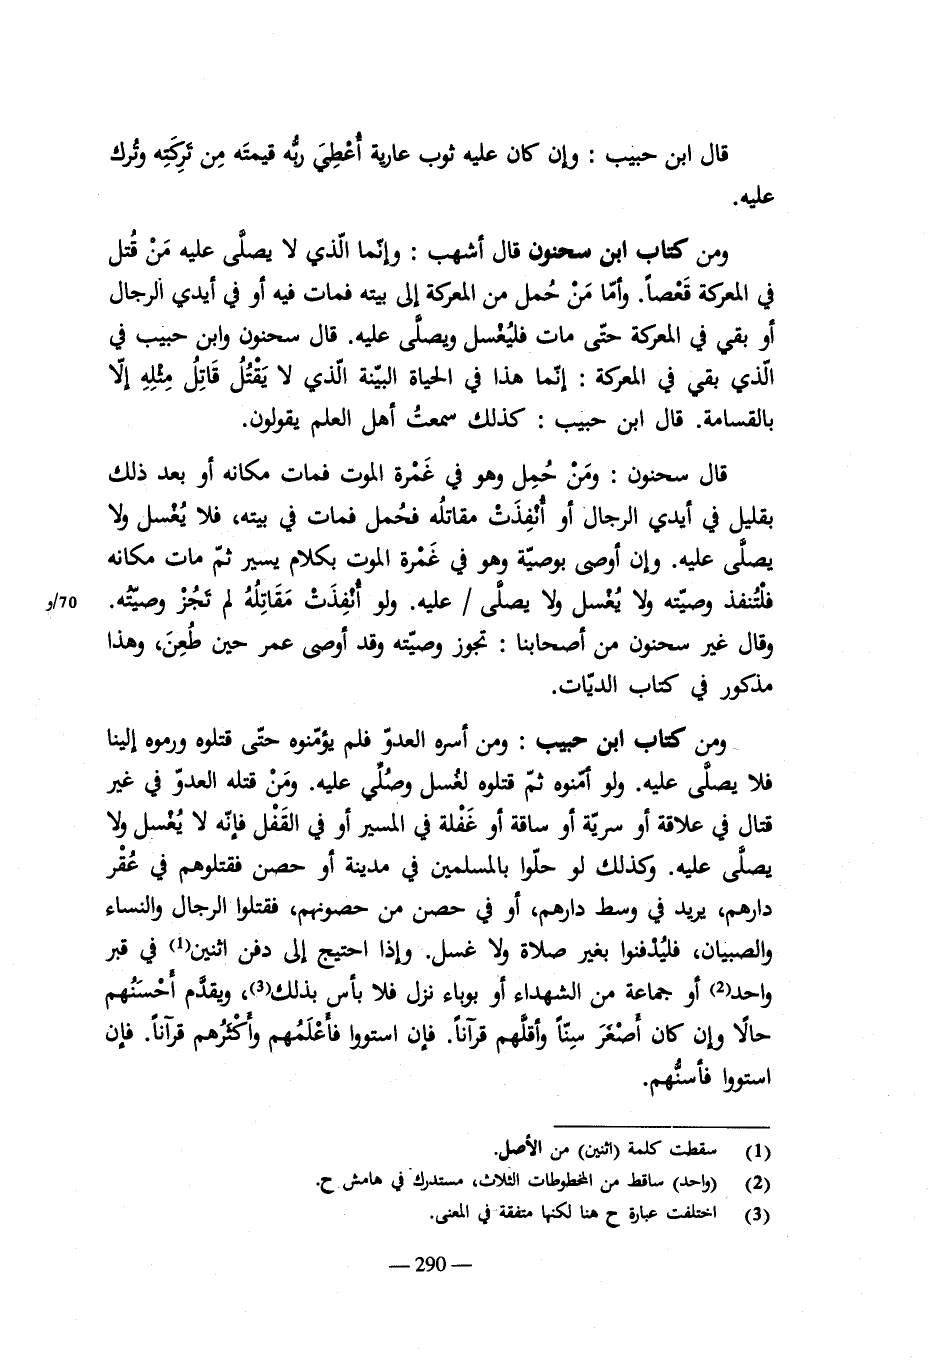 قال ابن حبيب : وإن كان عليه ثوب عارية أُعْطِيَ ربُّه قيمتَه مِن تَرِكَتِه وتُرك
عليه.
ومن كتاب ابن سحنون قال أشهب : وإنّما الّذي لا يصلَّى عليه مَنْ قُتل
في المعركة قَعْصاً. وأمّا مَنْ حُمل من المعركة إلى بيته فمات فيه أو في أيدي الرجال
أو بقي في المعركة حتّى مات فليُغْسل ويصلَّى عليه. قال سحنون وابن حبيب في
الّذي بقي في المعركة : إنّما هذا في الحياة البيّنة الّذي لا يَقْتُلُ قَاتِلُ مِثْلِهِ إلّا
بالقسامة. قال ابن حبيب : كذلك سمعتُ أهل العلم يقولون.
قال سحنون : ومَنْ حُمِل وهو في غَمْرة الموت فمات مكانه أو بعد ذلك
بقليل في أيدي الرجال أو أُنْفِذَتْ مقاتلُه فحُمل فمات في بيته، فلا يُغْسل ولا
يصلَّى عليه. وإن أوصى بوصيّة وهو في غَمْرة الموت بكلام يسير ثمّ مات مكانه
فلْتُنفذ وصيّته ولا يُغْسل ولا يصلَّى / عليه. ولو أُنْفِذَتْ مَقَاتِلُهُ لم تَجُزْ وصيّتُه. 70/و
وقال غير سحنون من أصحابنا : تجوز وصيّته وقد أوصى عمر حين طُعِنَ، وهذا
مذكور في كتاب الديّات.
ومن كتاب ابن حبيب : ومن أسره العدوّ فلم يؤمّنوه حتّى قتلوه ورموه إلينا
فلا يصلَّى عليه. ولو أمّنوه ثمّ قتلوه لغُسل وصُلِّي عليه. ومَنْ قتله العدوّ في غير
قتال في علاقة أو سريّة أو ساقة أو غَفْلة في المسير أو في القَفْل فإنّه لا يُغْسل ولا
يصلَّى عليه. وكذلك لو حلّوا بالمسلمين في مدينة أو حصن فقتلوهم في عُقْر
دارهم، يريد في وسط دارهم، أو في حصن من حصونهم، فقتلوا الرجال والنساء
والصبيان، فليُدْفنوا بغير صلاة ولا غسل. وإذا احتيج إلى دفن اثنين(1) في قبر
واحد(2) أو جماعة من الشهداء أو بوباء نزل فلا بأس بذلك(3)، ويقدَّم أَحْسَنُهم
حالًا وإن كان أَصْغَرَ سِنّاً وأقلَّهم قرآناً. فإن استووا فأَعْلَمُهم وأَكْثَرُهم قرآناً. فإن
استووا فأسنُّهم.
(1) سقطت كلمة (اثنين) من الأصل.
(2) (واحد) ساقط من المخطوطات الثلاث، مستدرك في هامش ح.
(3) اختلفت عبارة ح هنا لكنها متفقة في المعنى.
— 290 —